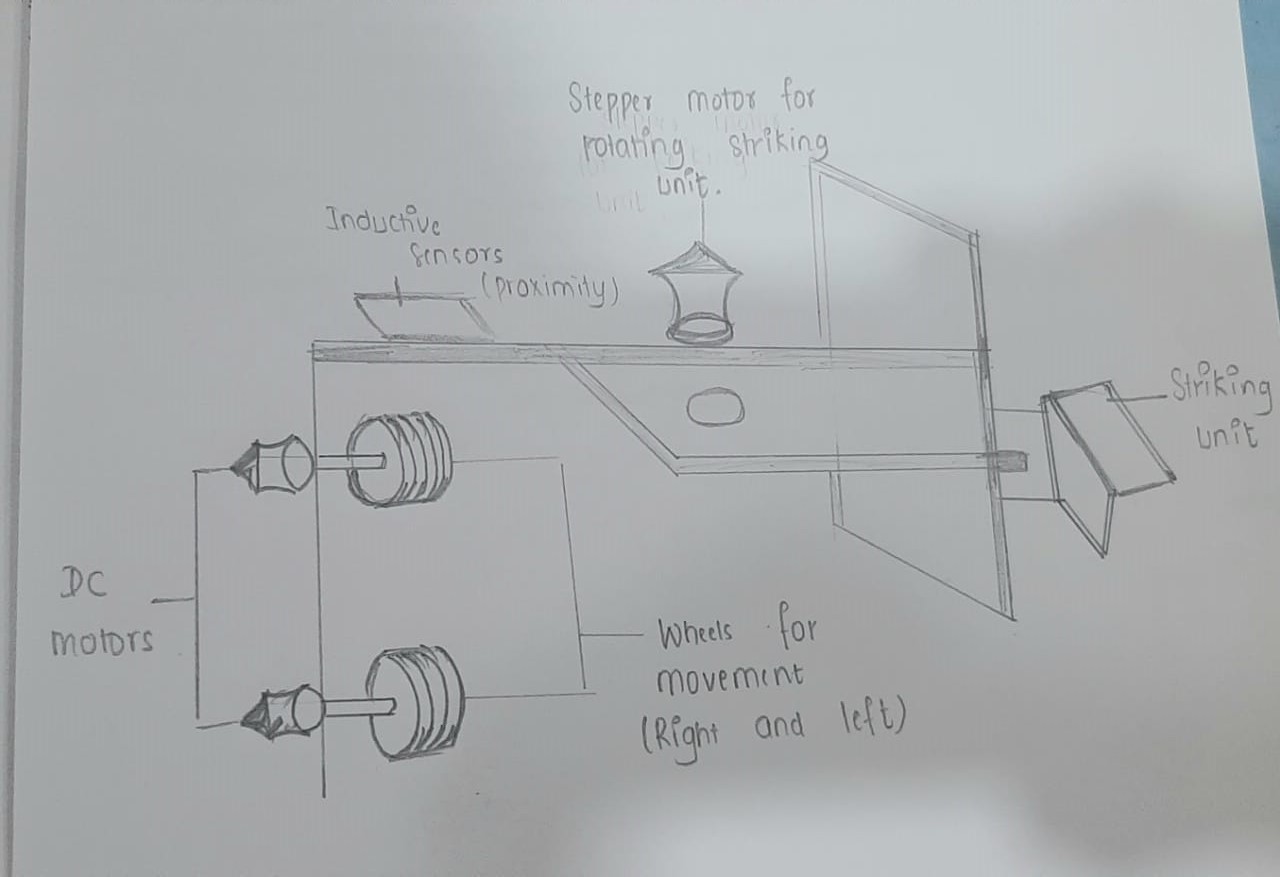 Stepper motor for
rotating striking
unit.
Inductive
sensors
(proximity)
Striking
unit
DC
motors
Wheels for
movement
(Right and left)